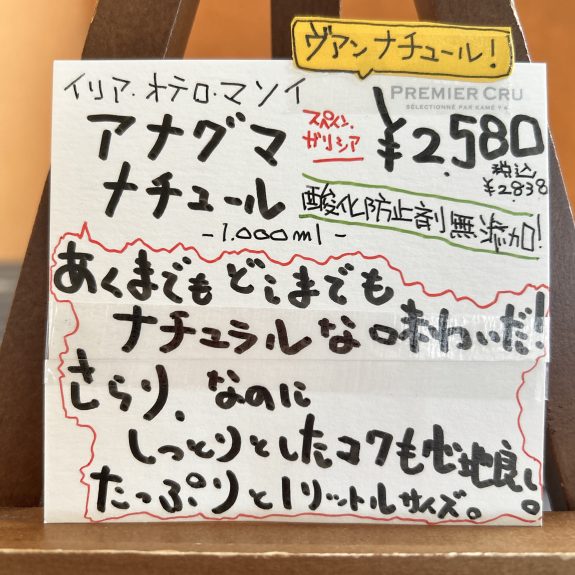 ヴァン ナチュール!
PREMIER CRU
SÉLECTIONNÉ PAR KAMÉYA
イリア・オテロ・マソイ
アナグマ
ナチュール
スペイン.
ガリシア
¥2.580
税込
¥2838
酸化防止剤無添加!
-1.000ml-
あくまでもどこまでも
ナチュラルな味わいだ!
さらり、なのに
しっとりとしたコクも心地良し。
たっぷりと1リットルサイズ。